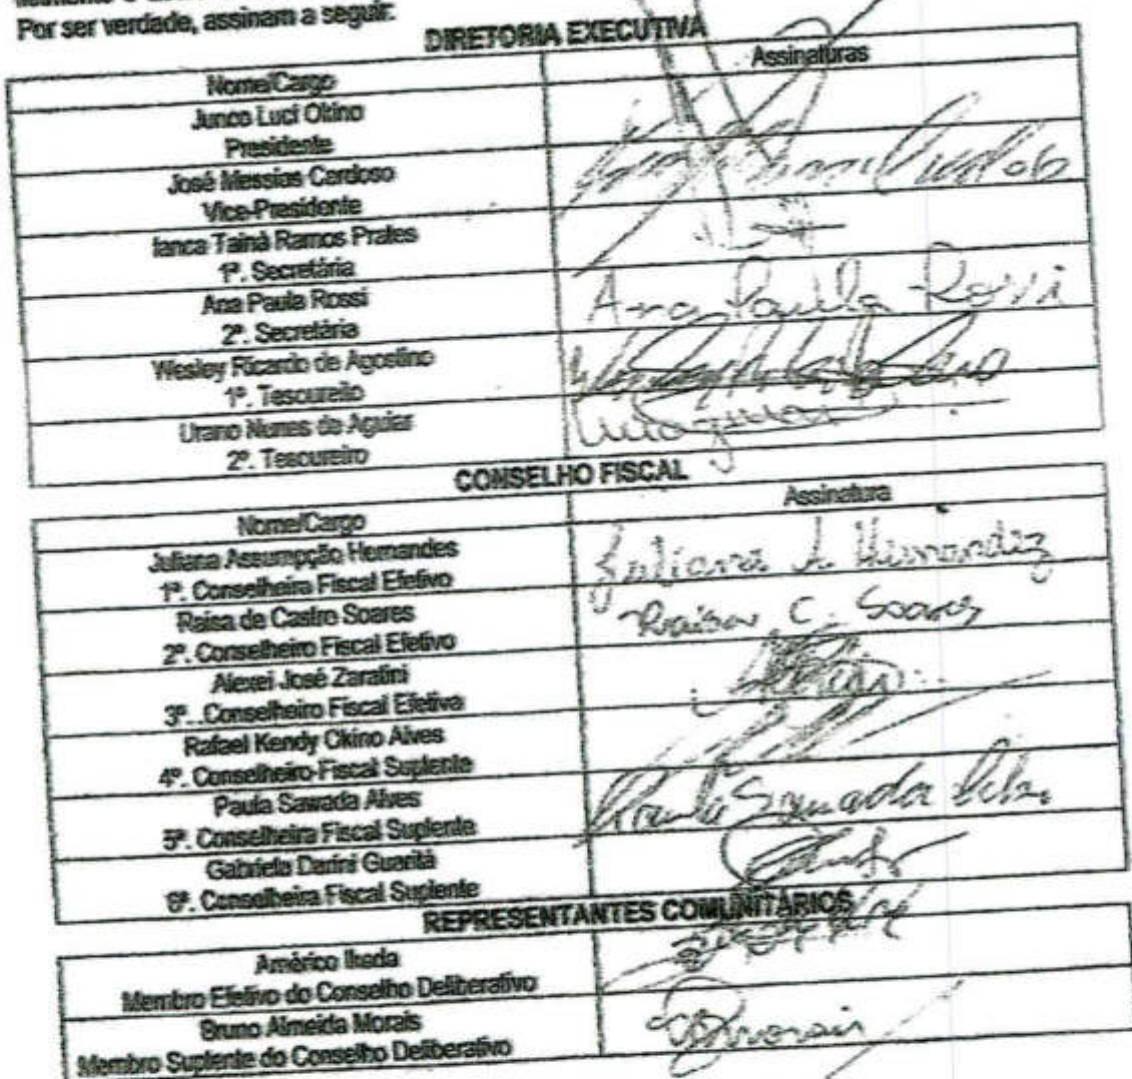 Por ser verdade, assinam a seguir:
DIRETORIA EXECUTIVA
Nome/Cargo
Assinaturas
Junco Luci Okino
Presidente
José Messias Cardoso
Vice-Presidente
Ianca Tainá Ramos Prates
1ª. Secretária
Ana Paula Rossi
2ª. Secretária
Ana Paula Rossi
Wesley Ricardo de Agostino
1º. Tesoureiro
Urano Nunes de Aguiar
2º. Tesoureiro
CONSELHO FISCAL
Nome/Cargo
Assinatura
Juliana Assumpção Hernandes
1ª. Conselheira Fiscal Efetivo
Juliana A. Hernandez
Raisa de Castro Soares
2ª. Conselheiro Fiscal Efetivo
Raisa C. Soares
Alexei José Zaratini
3º. .Conselheiro Fiscal Efetiva
Rafael Kendy Okino Alves
4º. Conselheiro-Fiscal Suplente
Paula Sawada Alves
5ª. Conselheira Fiscal Suplente
Gabriela Darini Guaritá
6ª. Conselheira Fiscal Suplente
REPRESENTANTES COMUNITÁRIOS
Américo Ikeda
Membro Efetivo do Conselho Deliberativo
Bruno Almeida Morais
Membro Suplente do Conselho Deliberativo